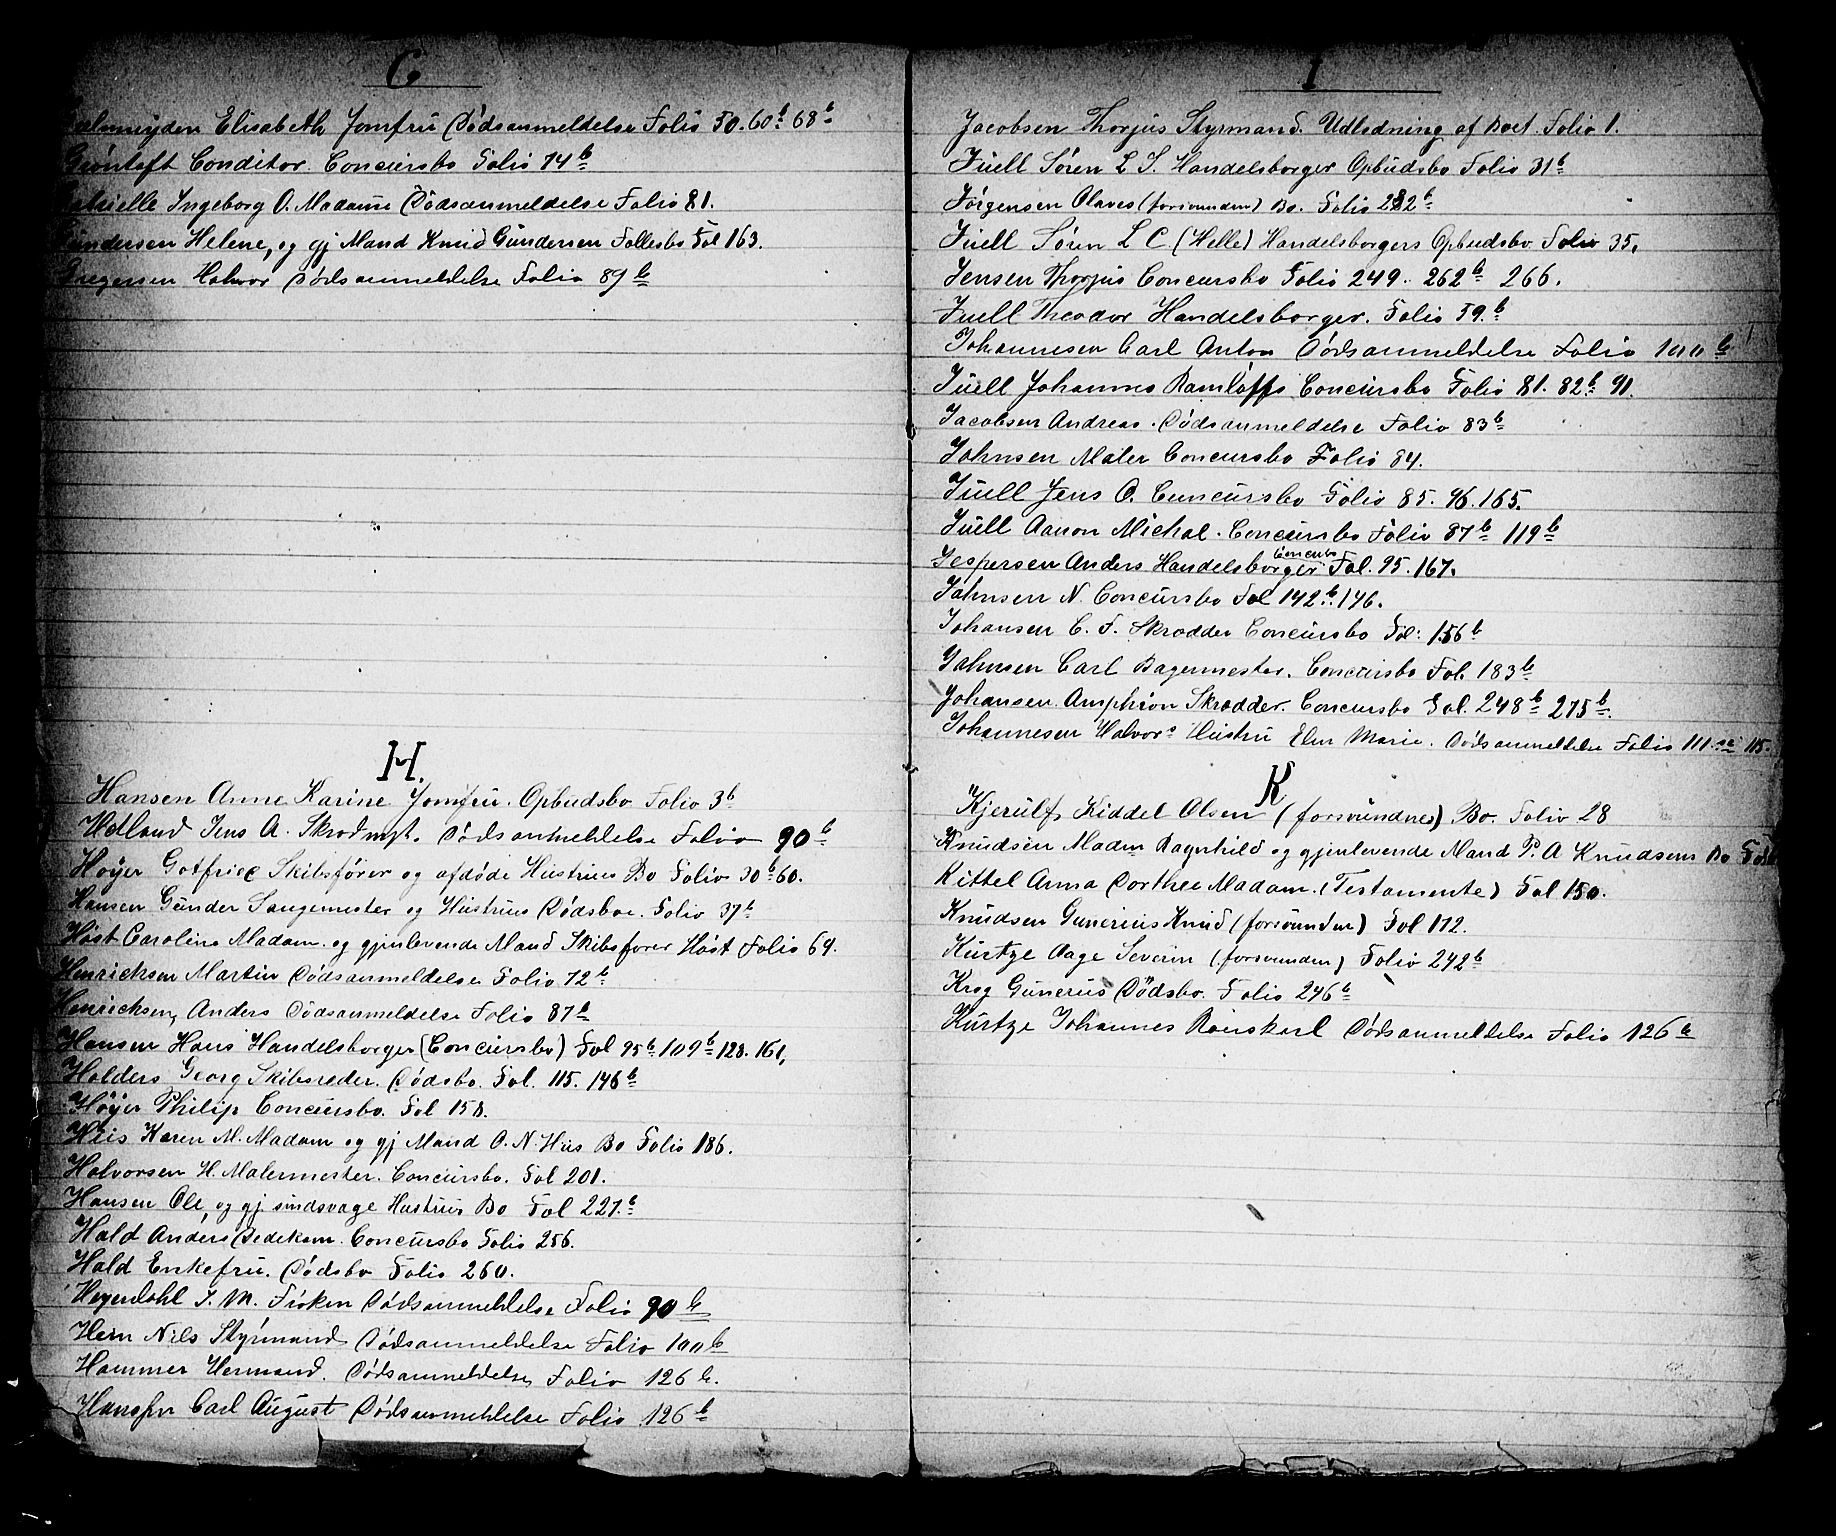 G
Elisabeth Jomfru Dödsanmeldelse Folio 50. 60b 68b
Gröntoft Conditor. Concursbo Folio 74b
Ingeborg O. Madame Dödsanmeldelse Folio 81.
Gundersen Helene, og gj Mand Knud Gundersen Fællesbo Fol 163.
Gregersen Halvor Dödsanmeldelse Folio 89b
H.
Hansen Anne Karine Jomfru. Opbudsbo Folio 3b
Hetland Jens A. Dödsanmeldelse Folio 90b
Höyer Gotfried Skibsförer og afdöde Hustrues Bo Folio 30b 60.
Hansen Gunder Sangemester og Hustrues Dödsboe. Folio 37b
Höst Caroline Madam og gjenlevende Mand Skibsförer Höst Folio 64.
Henricksen Martin Dödsanmeldelse Folio 72b
Henricksen, Anders Dödsanmeldelse Folio 87b
Hansen Hans Handelsborger (Concursbo) Fol 95b 109b 128. 161,
Holders Georg Skibsreder. Dödsbo. Fol. 115. 146b
Höyer Philip Concursbo. Fol 158.
Huis Karen M. Madam og gj Mand O. N. Huis Bo Folio 186.
Halvorsen H. Malermester. Concursbo. Fol 201.
Hansen Ole, og gj sindsvage Hustrues Bo Fol 227b
Hald Anders Dedekam. Concursbo Folio 256.
Hald Enkefru. Dödsbo Folio 260.
Heyerdahl J. M. Fröken Dödsanmeldelse Folio 90b
Hein Nils Styrmand Dödsanmeldelse Folio 100b
Hammer Hermand. Dödsanmeldelse Folio 126 b.
Hansen Carl August Dödsanmeldelse Folio 126b
I
Jacobsen Thorjus Styrmand. Udlodning af Boet. Folio 1.
Juell Sören L S. Handelsborger Opbudsbo Folio 31b
Jörgensen Olaves (forsvunden) Bo. Folio 282b
Juell Sören L C. (Helle) Handelsborgers Opbudsbo Folio 35.
Jensen Thorjus Concursbo Folio 249. 262b 266.
Juell Theodor Handelsborger. Folio 59.b
Johannesen Carl Anton Dödsanmeldelse Folio 100b
Juell Johannes Ramlöffs Concursbo Folio 81. 82b 91.
Jacobsen Andreas. Dödsanmeldelse Folio 83b
Johnsen Maler Concursbo Folio 84.
Juell Jens O. Concursbo Folio 85. 96. 165.
Juell Aanon Michal. Concursbo Folio 87b 119b
Jespersen Anders Handelsborger Concurbo Fol. 95. 167.
Johnsen N. Concursbo Fol 142b. 146.
Johansen C. F. Skrædder Concursbo Fol: 156b
Johnsen Carl Bagermester. Concursbo Fol. 183b
Johansen Amphion Skrædder. Concursbo Fol. 248b 275b.
Johannesen Halvors Hustru Elen Marie. Dödsanmeldelse Folio 111 115.
K
Kjerulf Kiddel Olsen (forsvundnes) Bo. Folio 28
Knudsen Madm Ragnhild og gjenlevende Mand P. A Knudsens Bo
Kittel Anna Dorthee Madam. (Testamente) Fol 150.
Knudsen Gunerius Knud (forsvunden) Fol 172.
Kurtze Aage Severin (forsvunden) Folio 242b
Krog Gunerus Dödsbo. Folio 246b
Kurtze Johannes Dödsanmeldelse Folio 126b